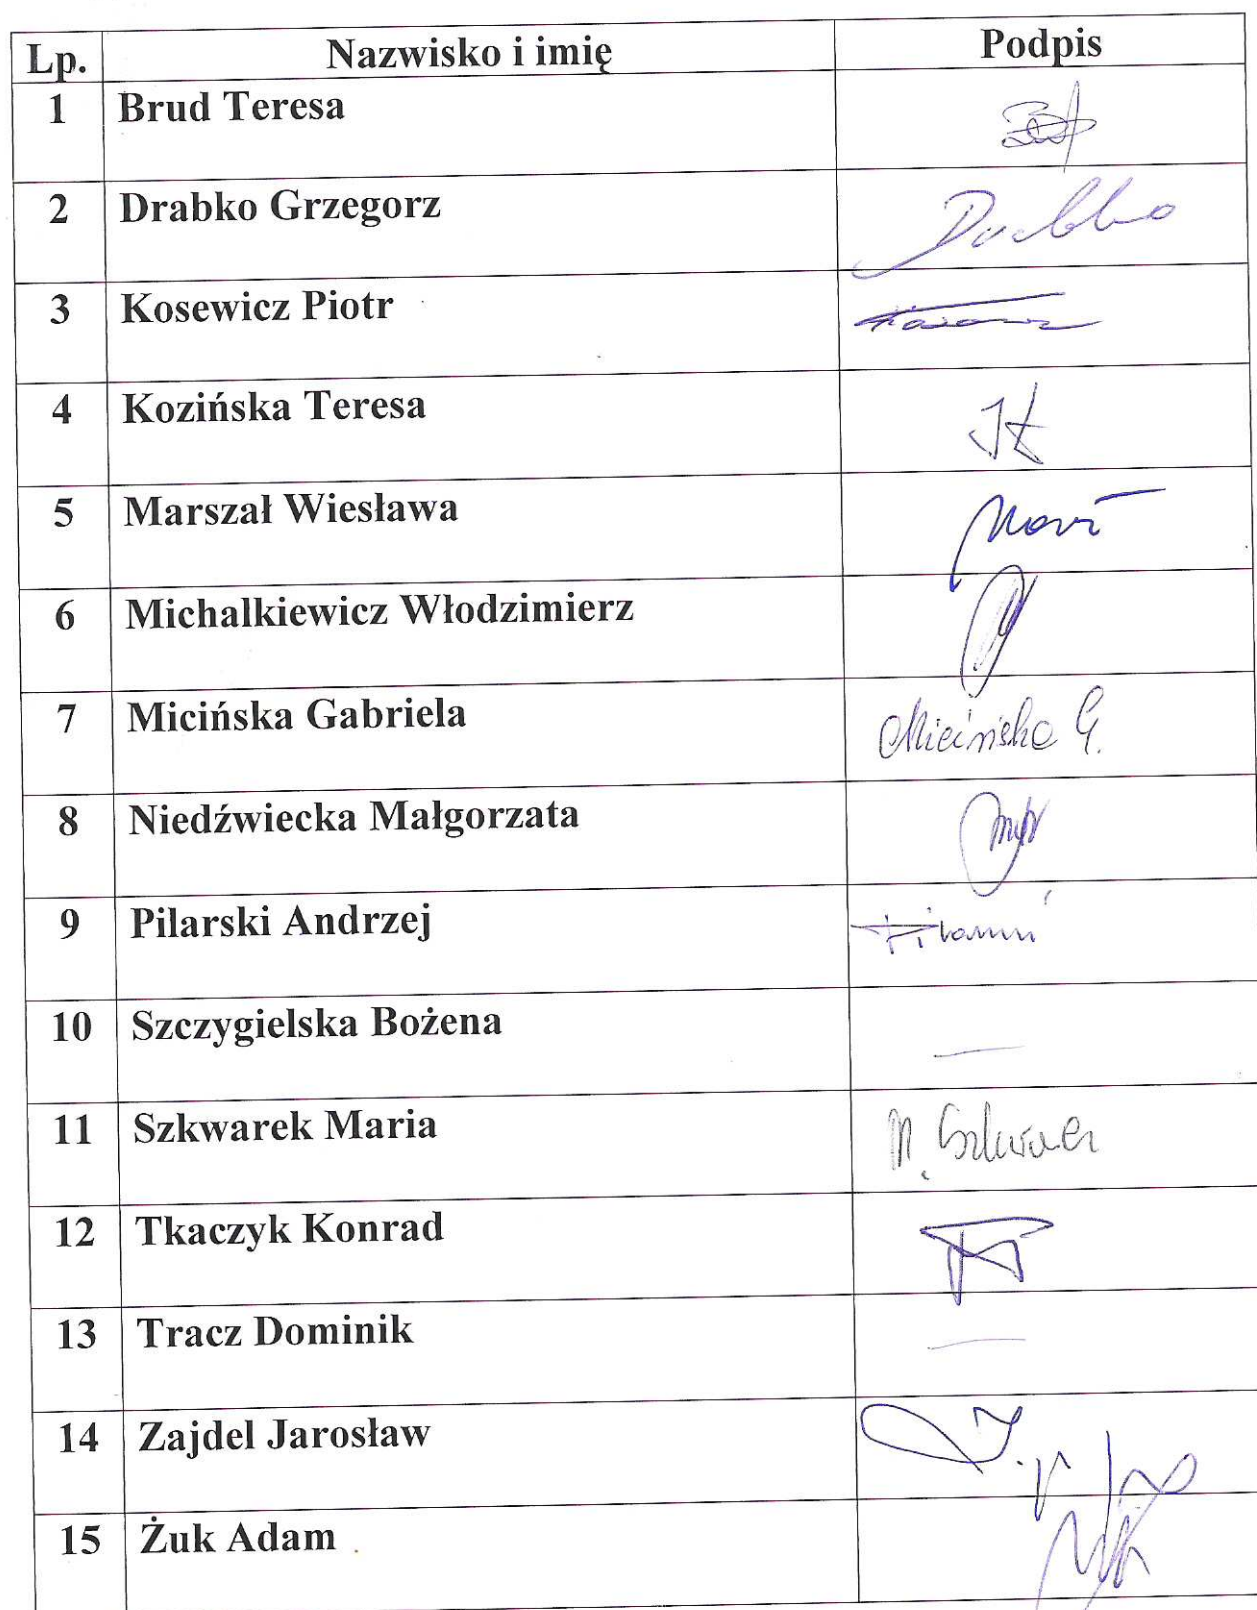 Lp. Nazwisko i imię Podpis
1 Brud Teresa
2 Drabko Grzegorz Drabko
3 Kosewicz Piotr
4 Kozińska Teresa
5 Marszał Wiesława
6 Michalkiewicz Włodzimierz
7 Micińska Gabriela Micińska G.
8 Niedźwiecka Małgorzata
9 Pilarski Andrzej
10 Szczygielska Bożena —
11 Szkwarek Maria
12 Tkaczyk Konrad
13 Tracz Dominik —
14 Zajdel Jarosław
15 Żuk Adam